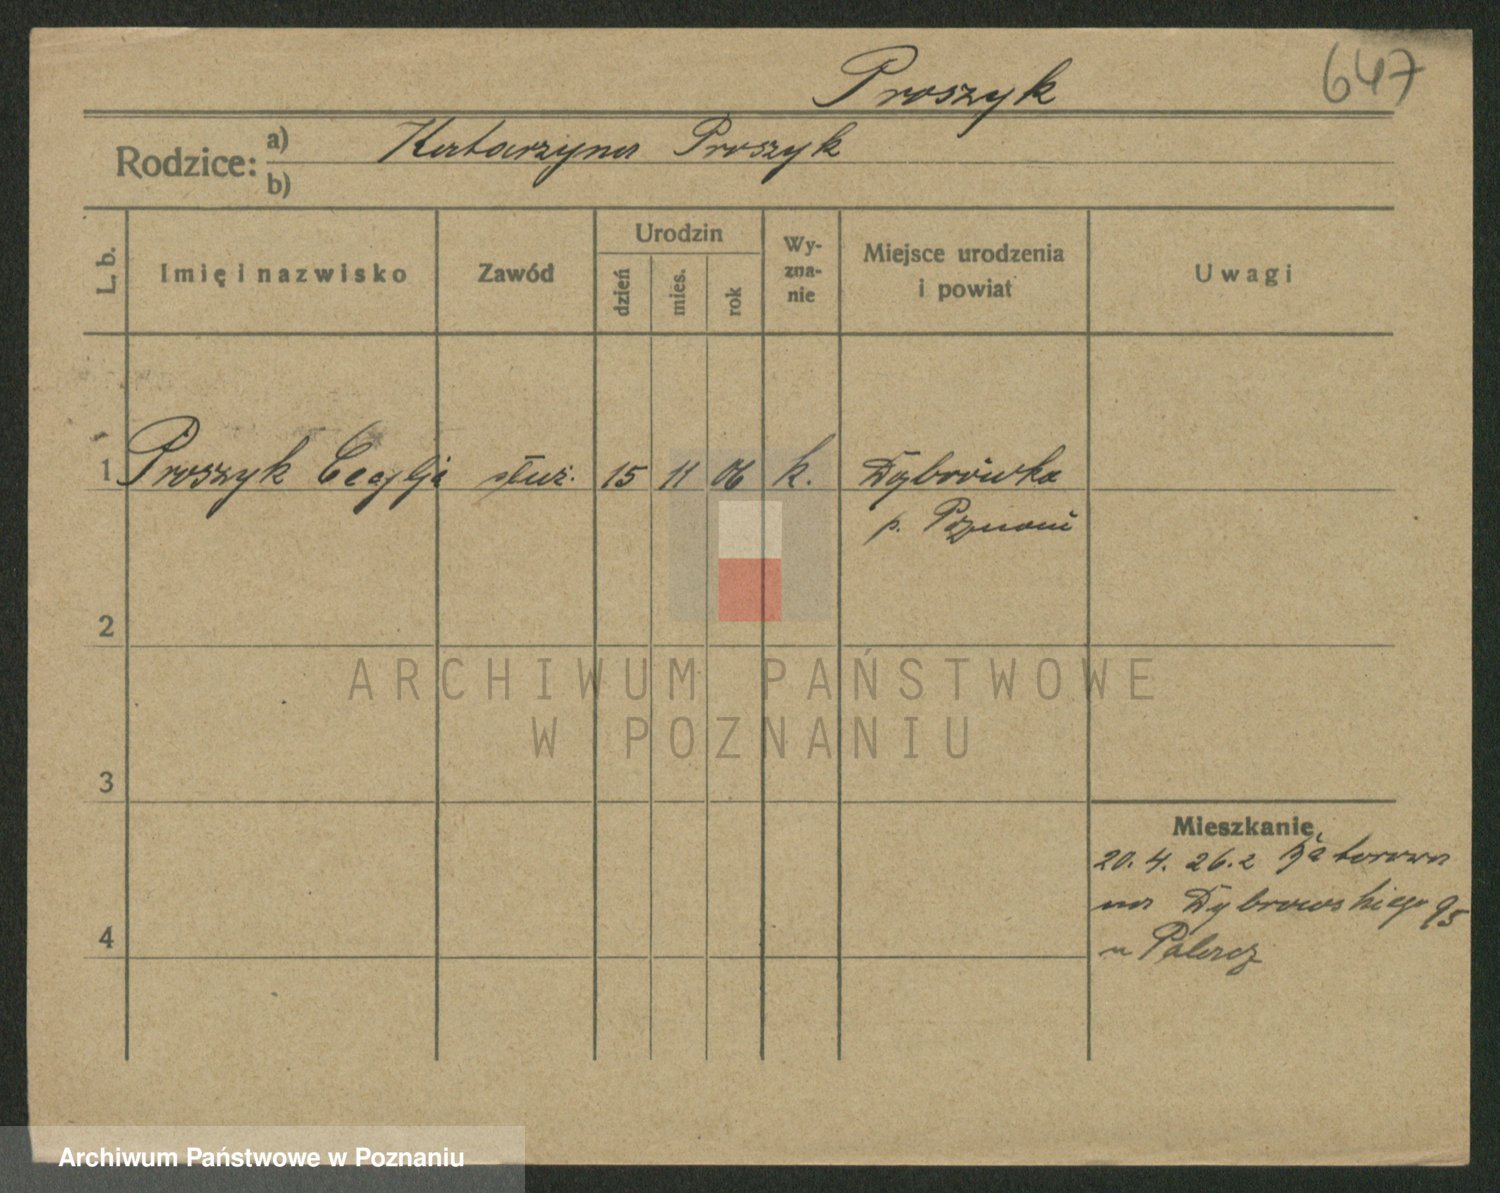 Proszyk
647
Rodzice:
a) Katarzyna Proszyk
b)
L. b.
Imię i nazwisko
Zawód
Urodzin
dzień
mies.
rok
Wy-
zna-
nie
Miejsce urodzenia
i powiat
Uwagi
1 Proszyk służ. 15 11 06 k. Dąbrówka
p. Poznań
2
3
4
Mieszkanie
20. 4. 26. z
na Dąbrowskiego 95
u
ARCHIWUM PAŃSTWOWE
W POZNANIU
Archiwum Państwowe w Poznaniu